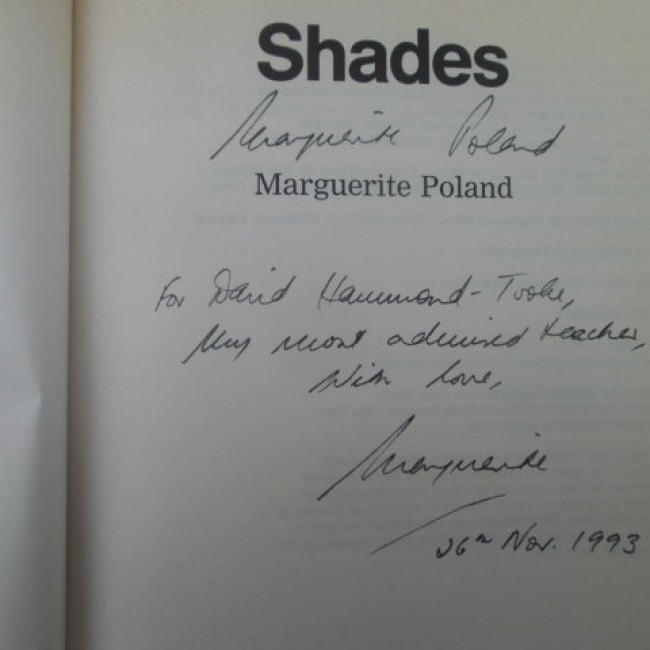 Shades
Marguerite Poland
Marguerite Poland
For David Hammond-Tooke,
My most admired teacher,
With love,
Marguerite
26th Nov. 1993